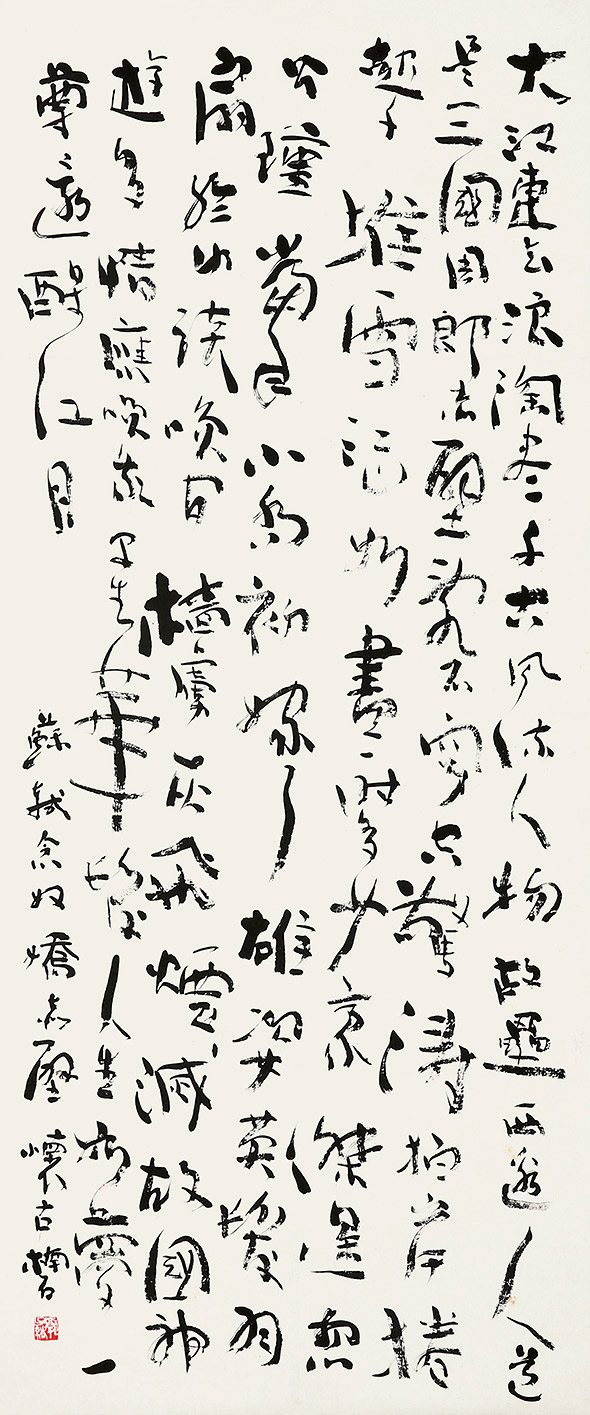 大江東去浪淘盡千古風流人物故壘西邊人道
是三國周郎赤壁亂石穿空驚濤拍岸捲
起千堆雪江山如畫一時多少豪傑遙想
公瑾當年小喬初嫁了雄姿英發羽
扇綸巾談咲間檣虜灰飛煙滅故國神
遊多情應咲我早生華髮人生如夢一
尊還酹江月
蘇軾念奴嬌赤壁懷古